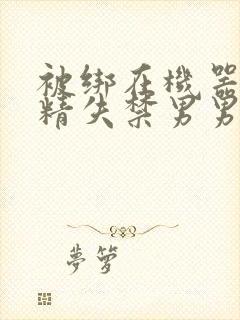 被绑在機器
精失禁男男
夢箩